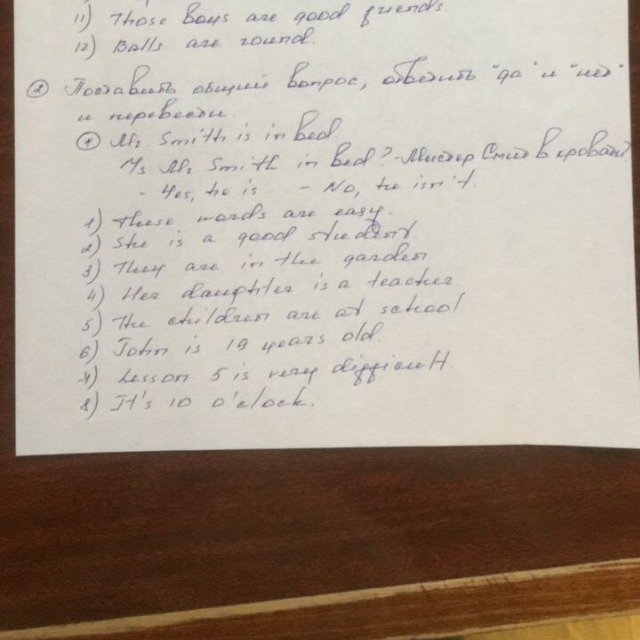 11) Those boys are good friends.
12) Balls are round.
② Поставить общий вопрос, ответить "да" и "нет"
и перевести.
Mr Smith is in bed.
Is Mr Smith in bed? - Мистер Смит в кровати?
- Yes, he is. - No, he isn't.
1) These words are easy.
2) She is a good student.
3) They are in the garden.
4) Her daughter is a teacher.
5) The children are at school.
6) John is 19 years old.
7) Lesson 5 is very difficult.
8) It's 10 o'clock.